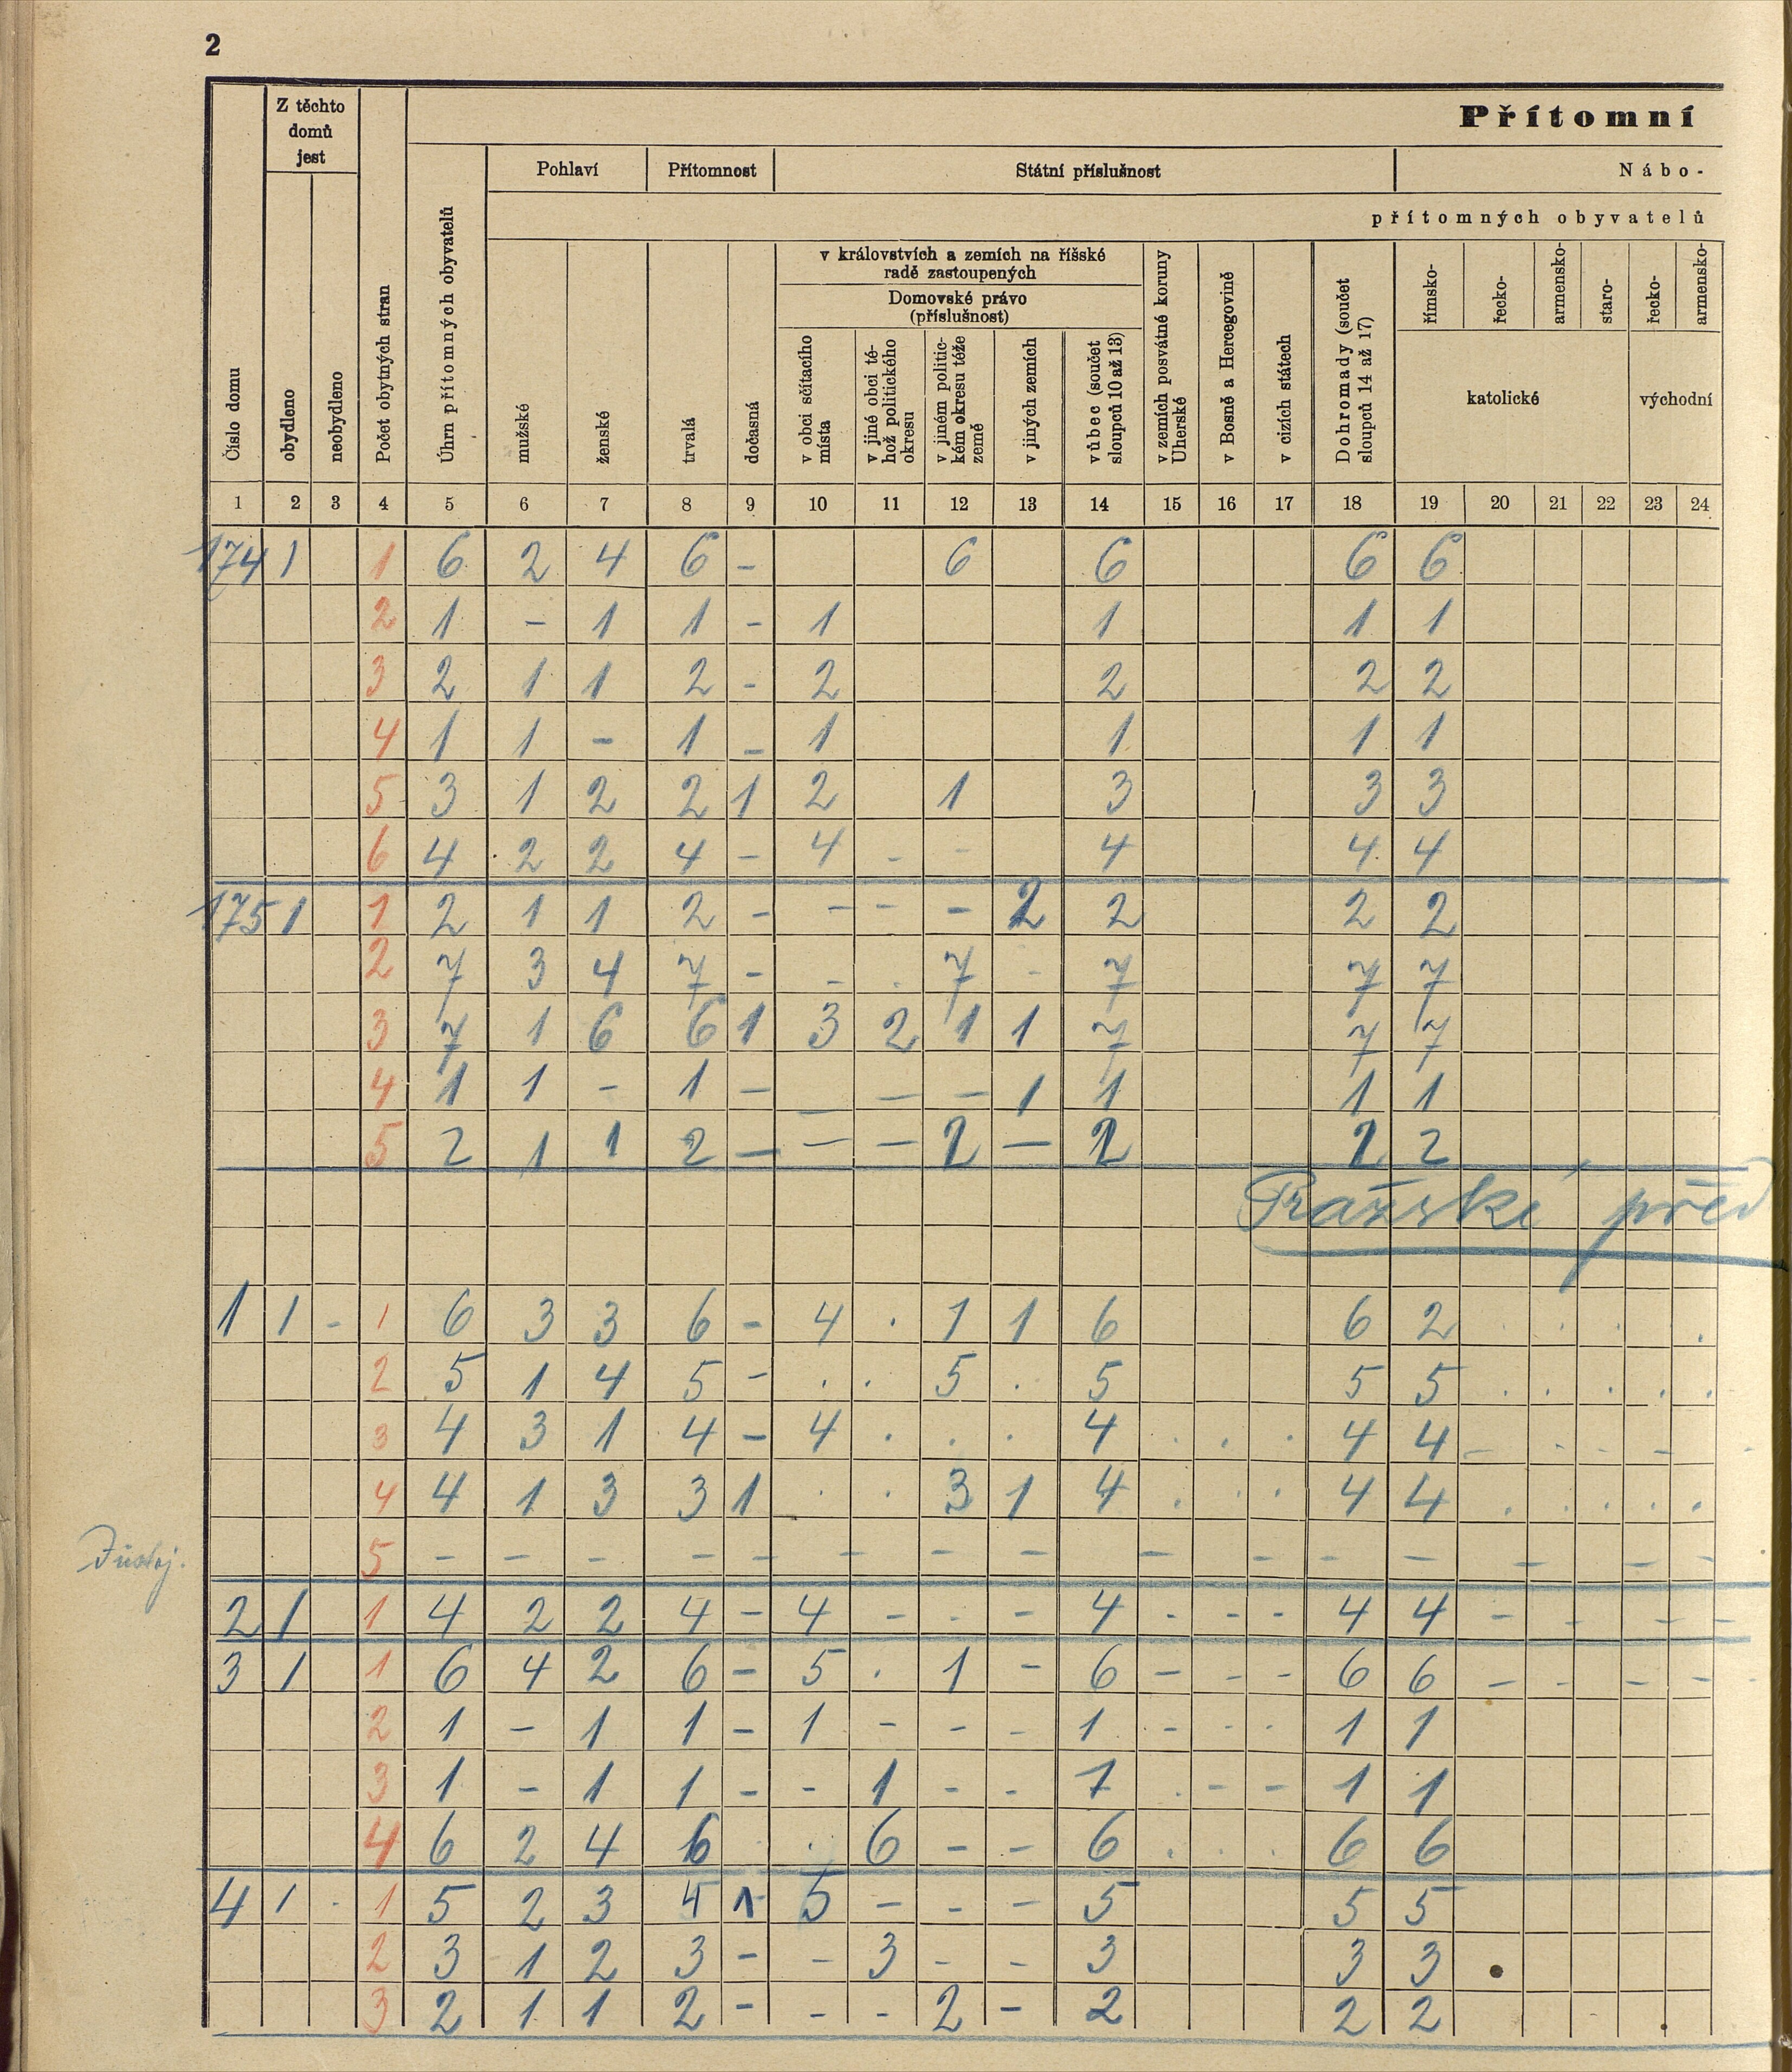 2
Přítomní
Z těchto domů jest
Pohlaví Přítomnost Státní příslušnost Nábo-
přítomných obyvatelů
v království a zemích na říšské radě zastoupených
Domovské právo (příslušnost)
Číslo domu
obydleno
neobydleno
Počet obytných stran
Úhrn přítomných obyvatelů
mužské
ženské
trvalá
dočasná
v obci sčítacího místa
v jiné obci téhož politického okresu
v jiném politickém okresu téže země
v jiných zemích
vůbec (součet sloupců 10 až 13)
v zemích posvátné koruny Uherské
v Bosně a Hercegovině
v cizích státech
Dohromady (součet sloupců 14 až 17)
římsko- řecko- armensko- staro- řecko- armensko-
katolické východní
1 2 3 4 5 6 7 8 9 10 11 12 13 14 15 16 17 18 19 20 21 22 23 24
174 1 1 6 2 4 6 - 6 6 6 6
2 1 - 1 1 - 1 1 1 1
3 2 1 1 2 - 2 2 2 2
4 1 1 - 1 - 1 1 1 1
5 3 1 2 2 1 2 1 3 3 3
6 4 2 2 4 - 4 - - 4 4 4
175 1 1 2 1 1 2 - - - - 2 2 2 2
2 7 3 4 7 - - . 7 - 7 7 7
3 7 1 6 6 1 3 2 1 1 7 7 7
4 1 1 - 1 - - - - 1 1 1 1
5 2 1 1 2 - - - 2 - 2 2 2
Pražské před
1 1 - 1 6 3 3 6 - 4 . 1 1 6 6 2 . . . . .
2 5 1 4 5 - . . 5 . 5 5 5 . . . . .
3 4 3 1 4 - 4 . . . 4 . . . 4 4 - - - - -
4 4 1 3 3 1 . . 3 1 4 . . . 4 4 . . . . .
5 - - - - - - - - - - - - - - -
2 1 1 4 2 2 4 - 4 - - - 4 - - - 4 4 - - - -
3 1 1 6 4 2 6 - 5 . 1 - 6 - - - 6 6 - - - -
2 1 - 1 1 - 1 - - - 1 - - - 1 1
3 1 - 1 1 - - 1 - - 1 . - - 1 1
4 6 2 4 6 . . 6 - - 6 . . . 6 6
4 1 . 1 5 2 3 4 1 5 - - - 5 5 5
2 3 1 2 3 - - 3 - - 3 3 3
3 2 1 1 2 - - - 2 - 2 2 2